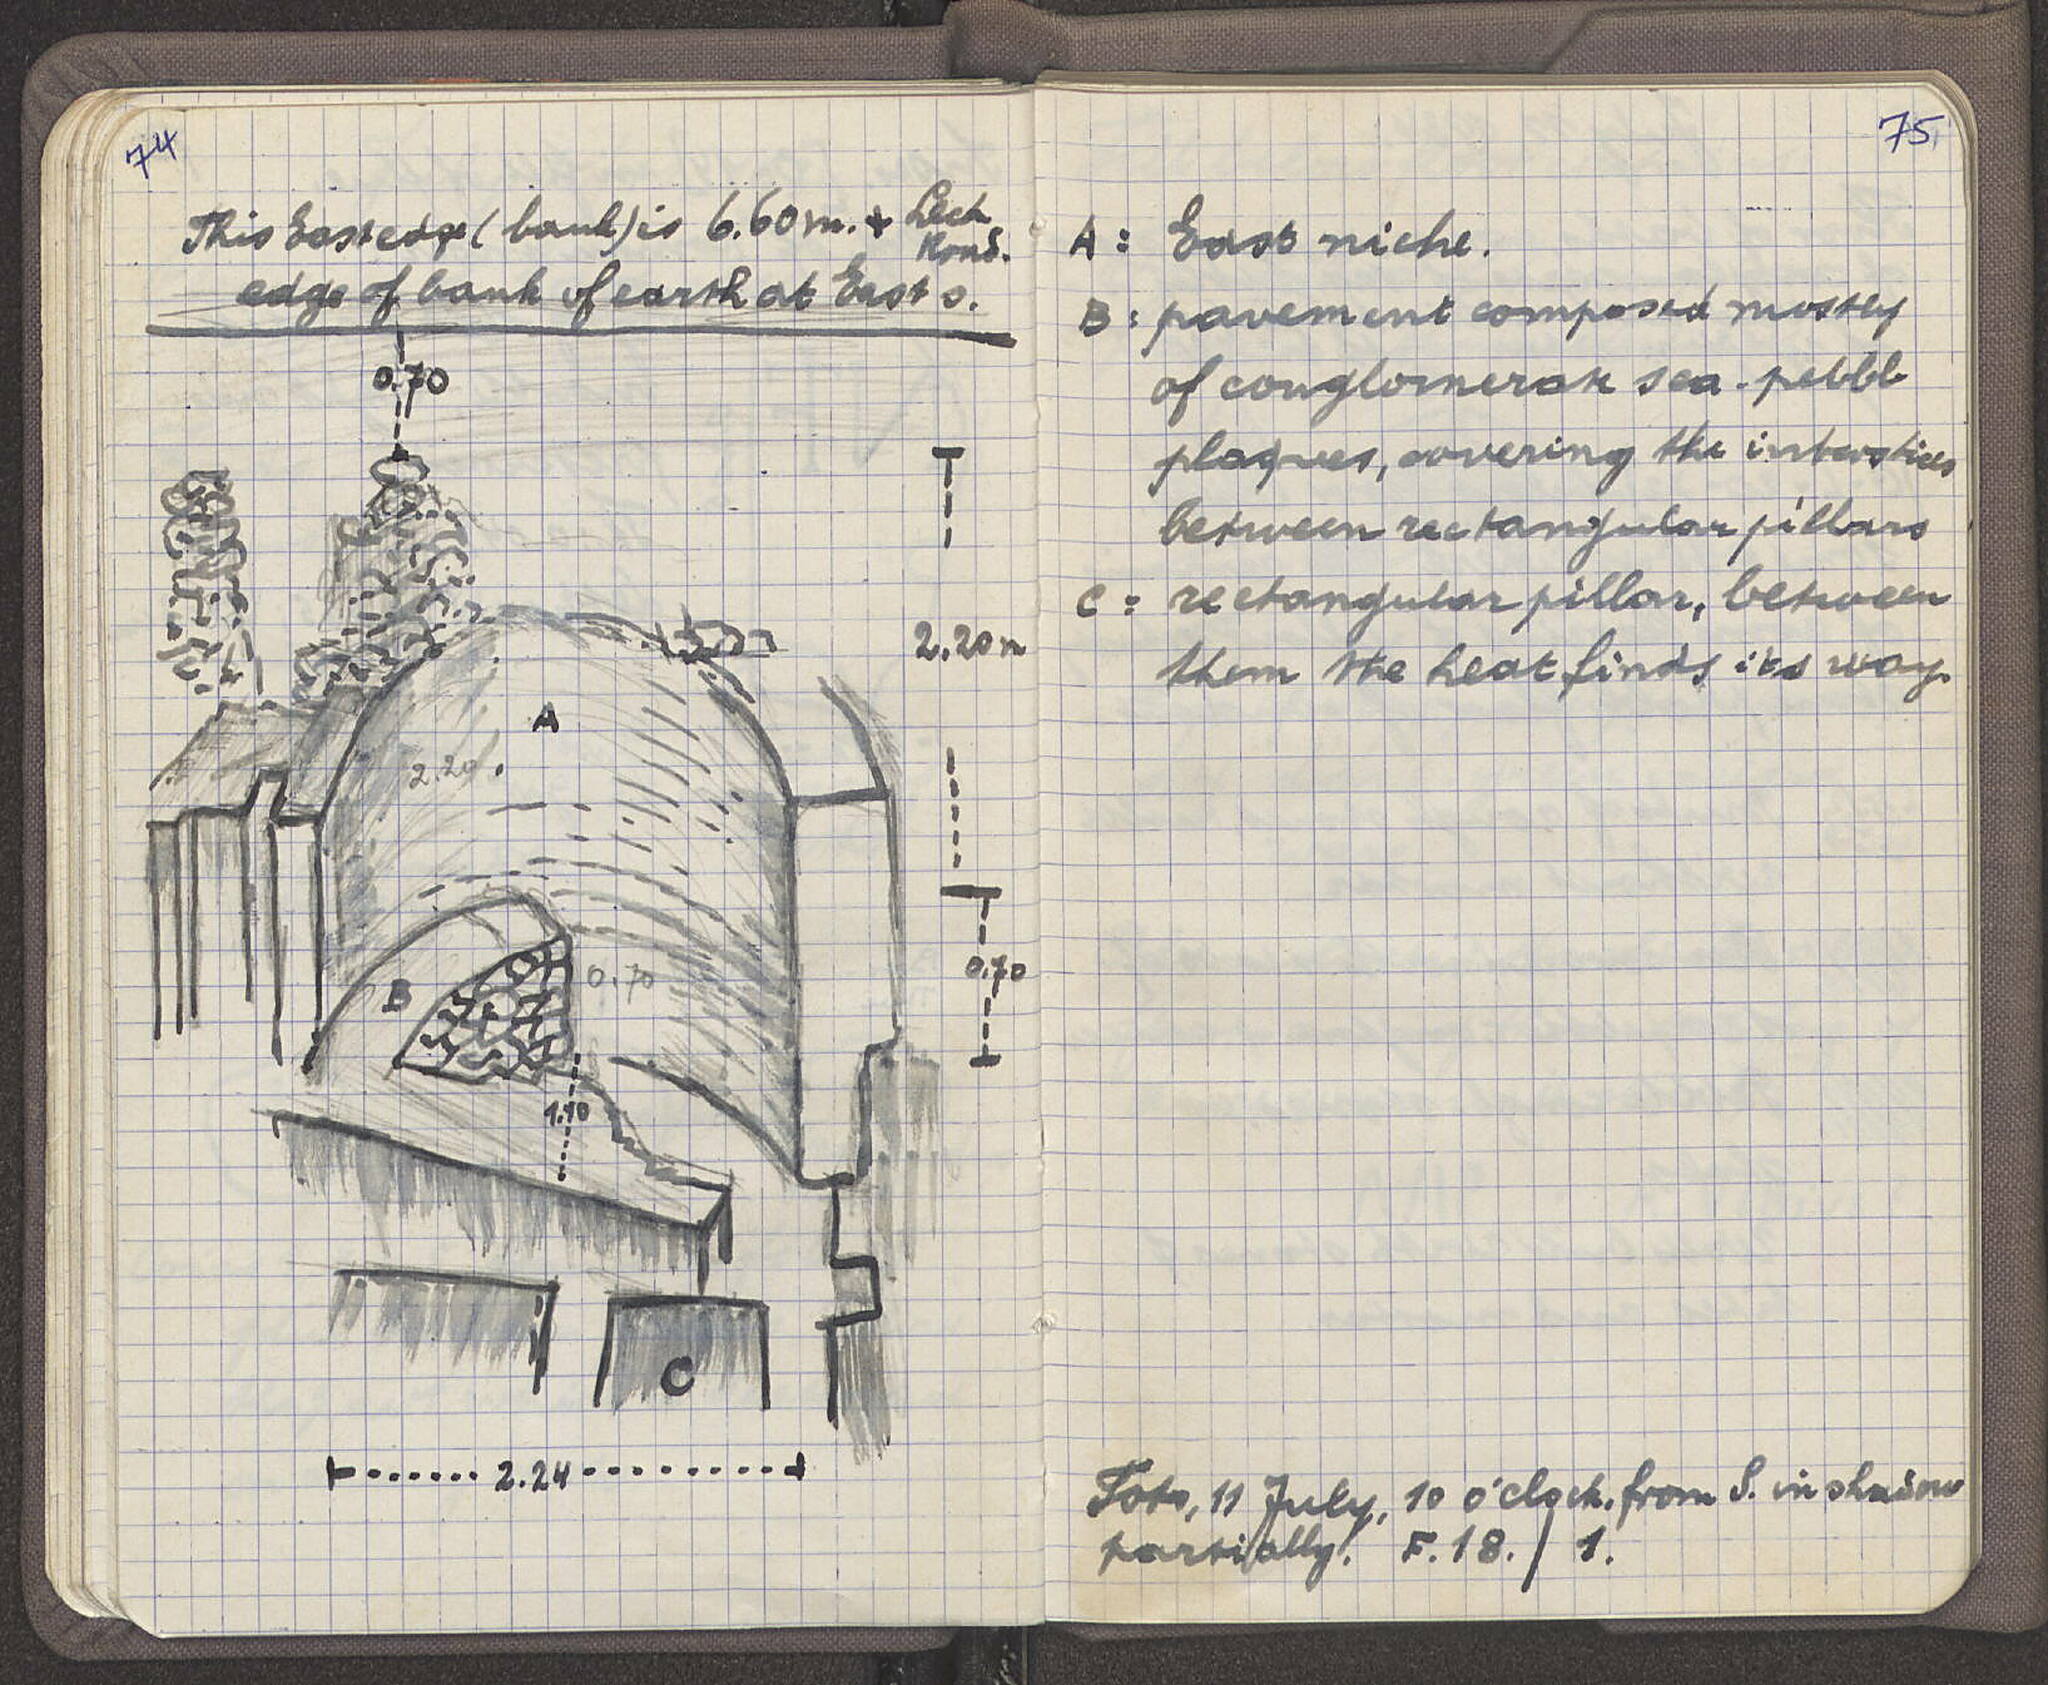 74
This East edge (bank) is 6.60 m. +
edge of bank of earth at East s.
0.70
2.20 m
A
2.20.
0.70
B
0.70
1.10
C
2.24
75
A: East niche.
B: pavement composed mostly
of conglomerate sea-pebbl
plaques, covering the interstices
between rectangular pillars
C: rectangular pillar, between
them the heat finds its way.
Foto, 11 July, 10 o'clock, from S. in shadow
partially! F.18. / 1.